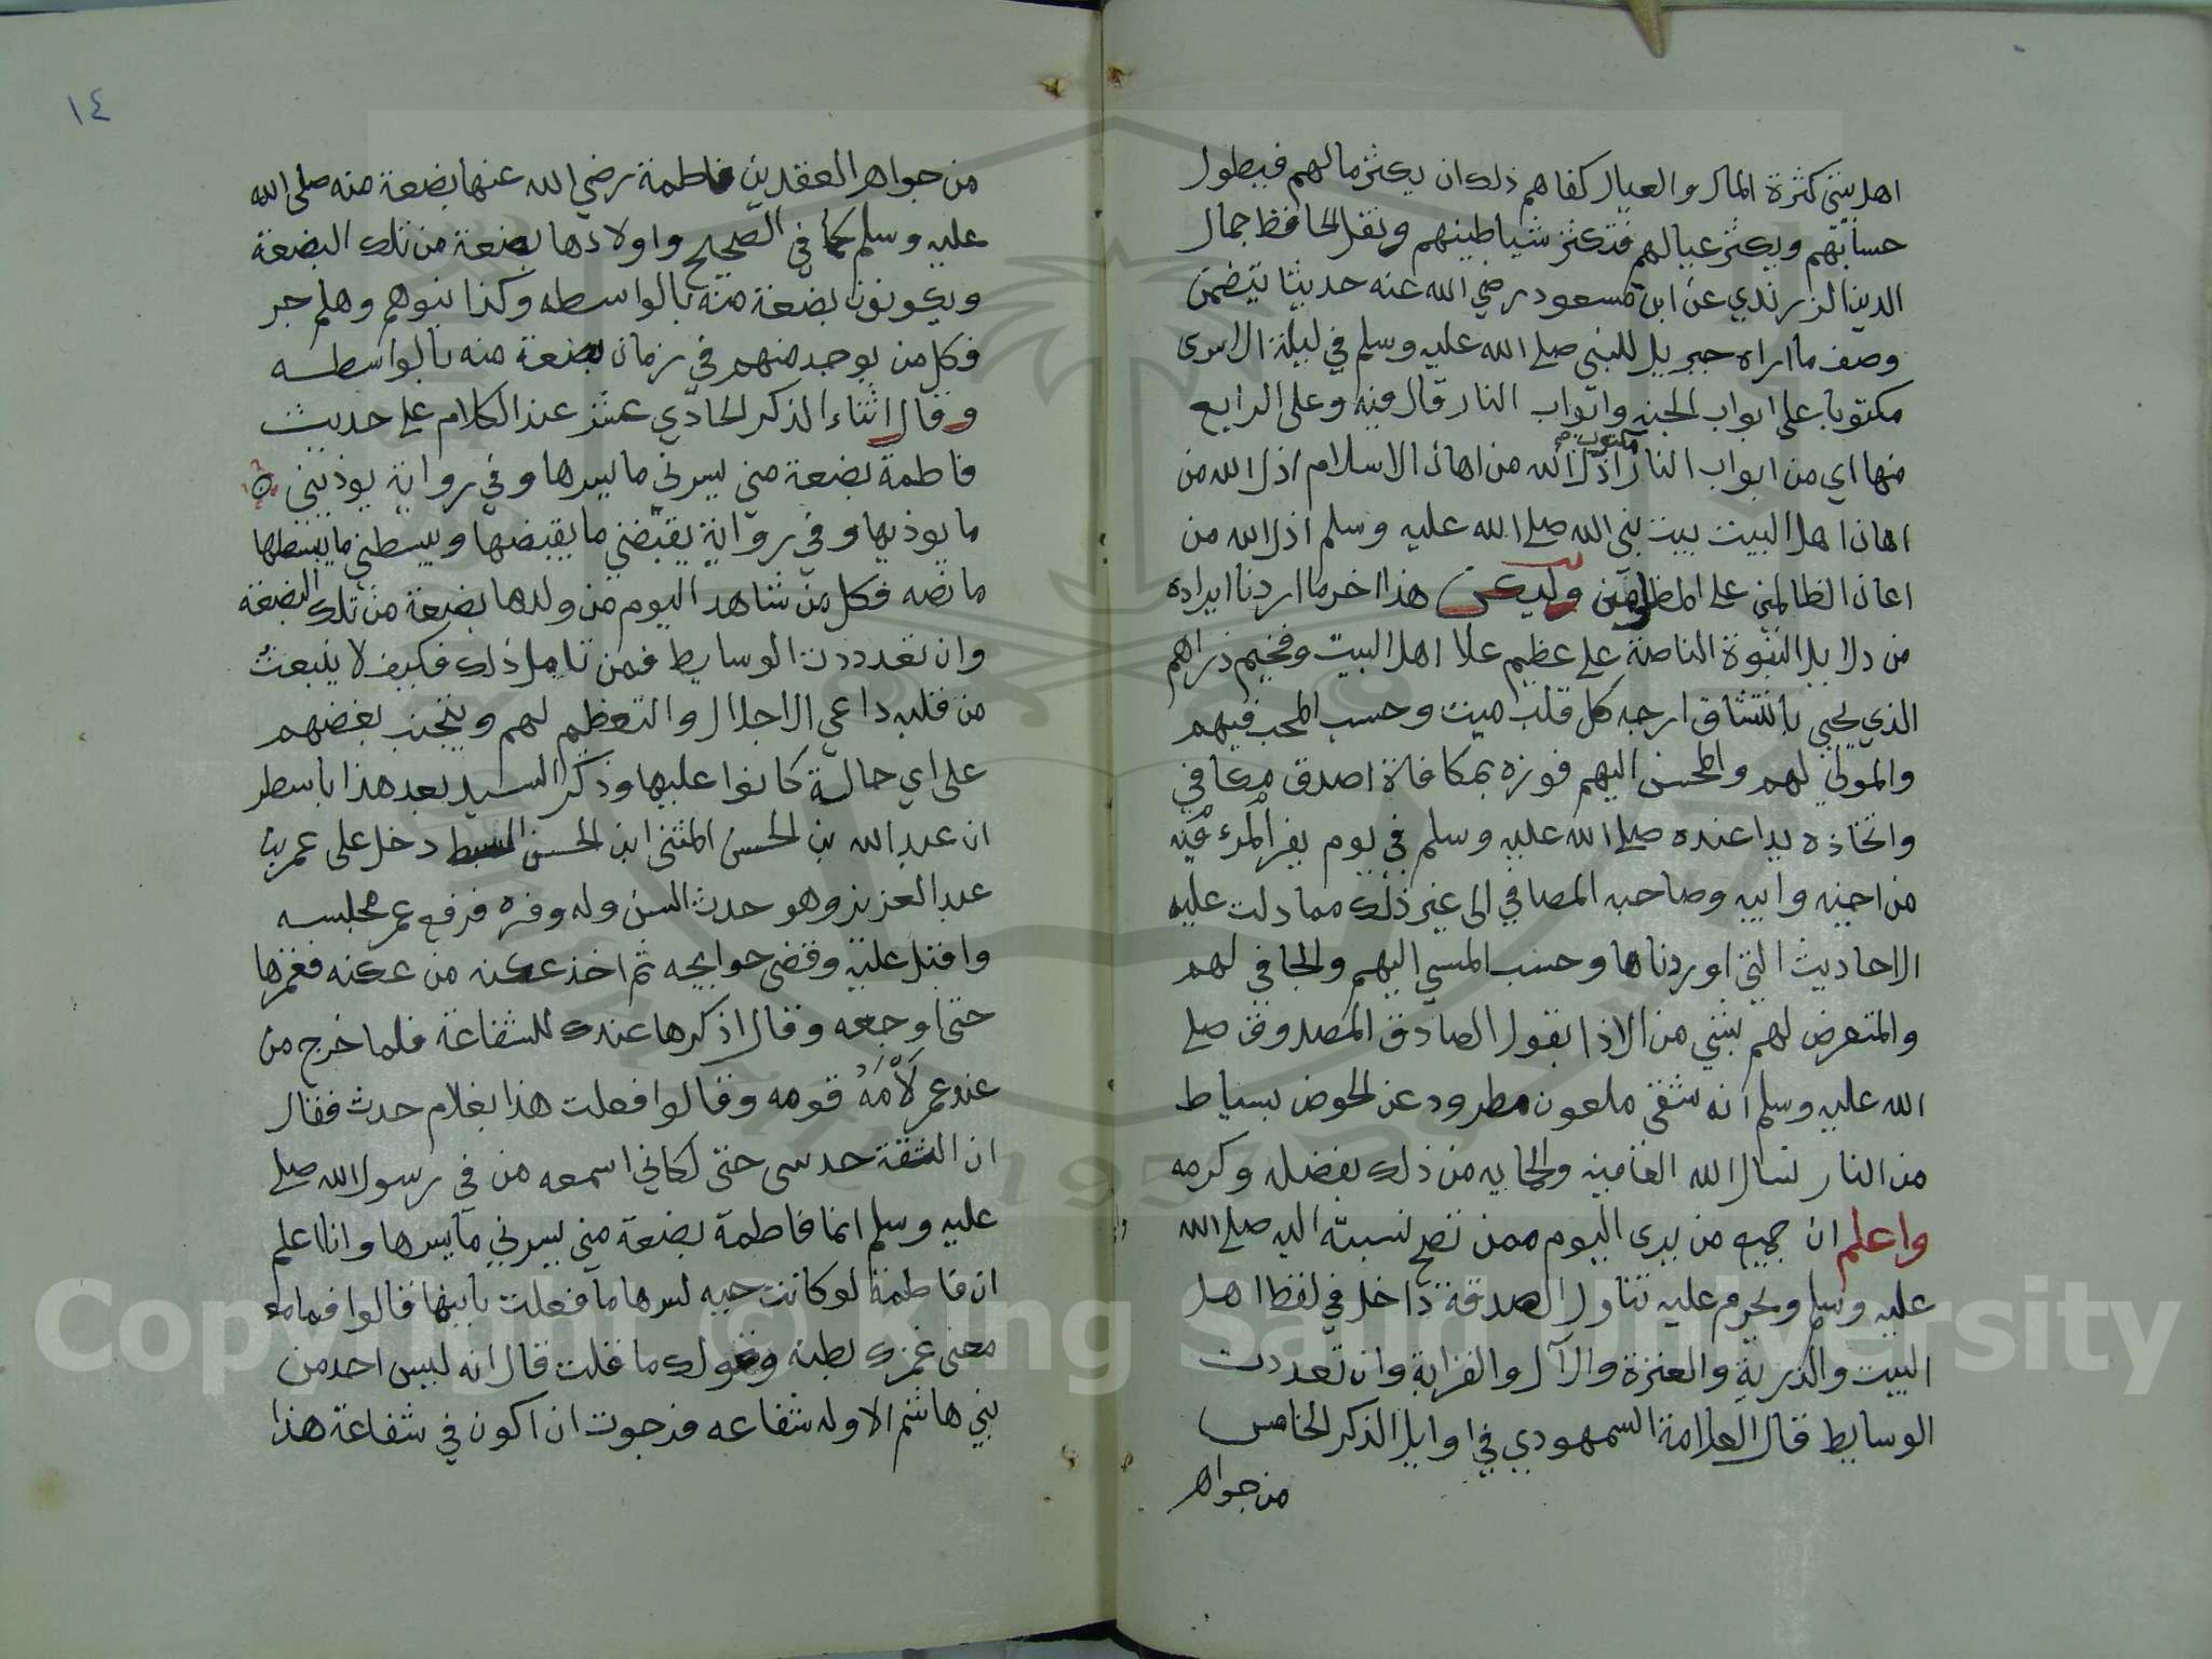 اهل بيتي كثرة المال والعيال كفاهم ذلك ان يكثر مالهم فيطول
حسابهم ويكثر عيالهم فتكثر شياطينهم ونقل الحافظ جمال
الدين الزرندي عن ابن مسعود رضي الله عنه حديثا يتضمن
وصف ما اراه جبريل للنبي صلى الله عليه وسلم في ليلة الاسرى
مكتوبا على ابواب الجنه وابواب النار قال فيه وعلى الرابع
منها اي من ابواب النار مكتوب اذل الله من اهان الاسلام اذل الله من
اهان اهل البيت بيت نبي الله صلى الله عليه وسلم اذل الله من
اعان الظالمين على المظلومين وليكن هذا اخر ما اردنا ايراده
من دلايل النبوة الناصة على عظيم علا اهل البيت وفخيم ذراهم
الذي يحيي بانتشاق ارجه كل قلب ميت وحسب المحب فيهم
والموالي لهم والمحسن اليهم فوزه بمكافاة اصدق مكافي
واتخاذه يدا عنده صلى الله عليه وسلم في يوم يفر المرء فيه
من اخيه وابيه وصاحبه المصافي الى غير ذلك مما دلت عليه
الاحاديث التي اوردناها وحسب المسي اليهم والجافي لهم
والمتعرض لهم بشي من الاذا بقول الصادق المصدوق صلى
الله عليه وسلم انه شقي ملعون مطرود عن الحوض بسياط
من النار نسال الله العافيه والحمايه من ذلك بفضله وكرمه
واعلم ان جميع من يرى اليوم ممن تصح نسبته اليه صلى الله
عليه وسلم ويحرم عليه تناول الصدقة داخل في لفظ اهل
البيت والذرية والعترة والآل والقرابة وان تعددت
الوسايط قال العلامة السمهودي في اوايل الذكر الخامس
من جواهر
١٤
من جواهر العقدين فاطمة رضي الله عنها بضعة منه صلى الله
عليه وسلم كما في الصحيح واولادها بضعة من تلك البضعة
ويكونون بضعة منه بالواسطه وكذا بنوهم وهلم جر
فكل من يوجد منهم في زمان بضعة منه بالواسطه
وقال اثناء الذكر الحادي عشر عند الكلام على حديث
فاطمة بضعة مني يسرني ما يسرها وفي رواية يوذيني
ما يوذيها وفي رواية يقبضني ما يقبضها ويبسطني ما يبسطها
ما نصه فكل من شاهد اليوم من ولدها بضعة من تلك البضعة
وان تعددت الوسايط فمن تامل ذلك فكيف لا ينبعث
من قلبه داعي الاجلال والتعظيم لهم ويتجنب بغضهم
على اي حالة كانوا عليها وذكر السيد بعد هذا باسطر
ان عبد الله بن الحسن المثنى ابن الحسن السبط دخل على عمر بن
عبد العزيز وهو حدث السن وله وفره فرفع عمر مجلسه
واقبل عليه وقضى حوايجه ثم اخذ عكنه من عكنه فغمزها
حتى اوجعه وقال اذكرها عندك للشفاعة فلما خرج من
عند عمر لامه قومه وقالوا فعلت هذا بغلام حدث فقال
ان الثقة حدسى حتى لكاني اسمعه من في رسول الله صلى
عليه وسلم انما فاطمة بضعة مني يسرني ما يسرها وانا اعلم
ان فاطمة لو كانت حيه لسرها ما فعلت بابنها قالوا فما
معنى غمزك بطنه وقولك ما قلت قال انه ليس احد من
بني هاشم الا وله شفاعه فرجوت ان اكون في شفاعة هذا
Copyright © King Saud University
1957